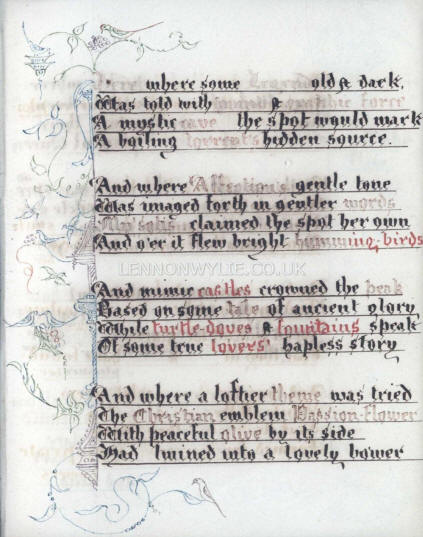 where some Legend old & dark,
Was told with & graphic force
A mystic cave the spot would mark
A boiling torrent's hidden source.
And where Affection's gentle tone
Was imaged forth in gentler words
claimed the spot her own
And o'er it flew bright humming, birds
LENNONWYLIE.CO.UK
And mimic castles crowned the peak
Based on some tale of ancient glory
While turtle-doves & fountains speak
Of some true lovers' hapless story
And where a loftier theme was tried
The Christian emblem Passion-flower
With peaceful olive by its side
Had twined into a lovely bower